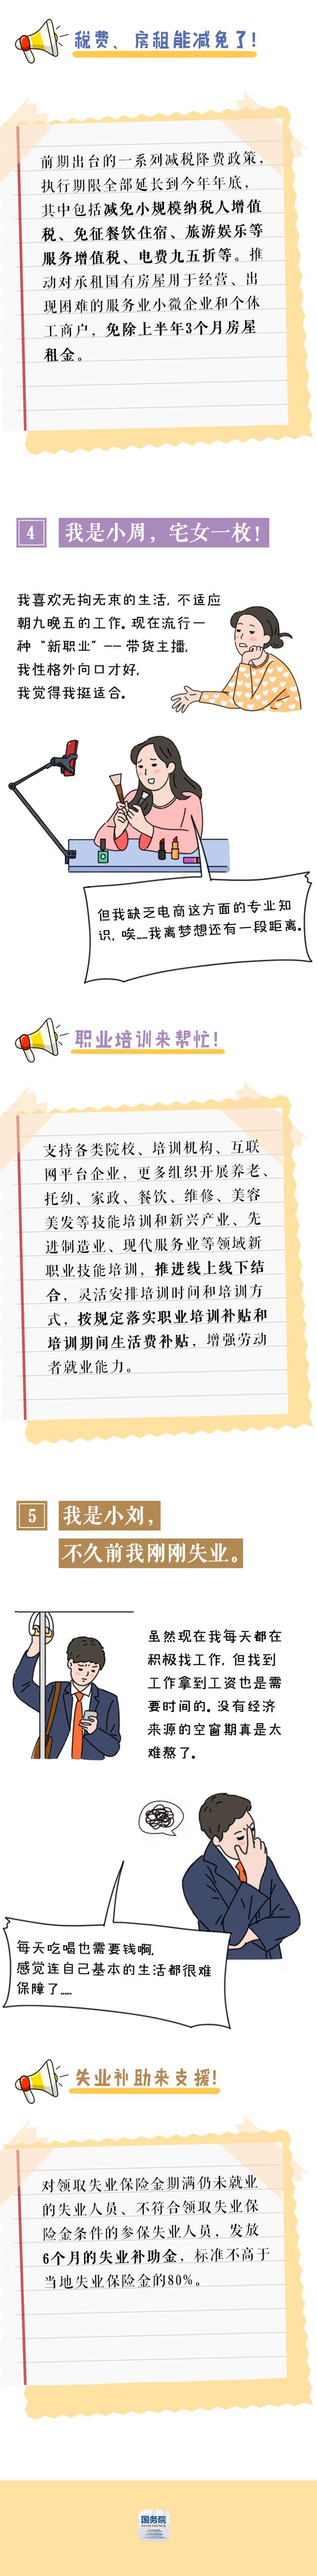 税费、房租能减免了!
前期出台的一系列减税降费政策，
执行期限全部延长到今年年底，
其中包括减免小规模纳税人增值
税、免征餐饮住宿、旅游娱乐等
服务增值税、电费九五折等。推
动对承租国有房屋用于经营、出
现困难的服务业小微企业和个体
工商户，免除上半年3个月房屋
租金。
4 我是小周，宅女一枚!
我喜欢无拘无束的生活，不适应
朝九晚五的工作。现在流行一
种“新职业”——带货主播，
我性格外向口才好，
我觉得我挺适合。
但我缺乏电商这方面的专业知
识，唉……我离梦想还有一段距离。
职业培训来帮忙!
支持各类院校、培训机构、互联
网平台企业，更多组织开展养老、
托幼、家政、餐饮、维修、美容
美发等技能培训和新兴产业、先
进制造业、现代服务业等领域新
职业技能培训，推进线上线下结
合，灵活安排培训时间和培训方
式，按规定落实职业培训补贴和
培训期间生活费补贴，增强劳动
者就业能力。
5 我是小刘，
不久前我刚刚失业。
虽然现在我每天都在
积极找工作，但找到
工作拿到工资也是需
要时间的。没有经济
来源的空窗期真是太
难熬了。
每天吃喝也需要钱啊，
感觉连自己基本的生活都很难
保障了……
失业补助来支援!
对领取失业保险金期满仍未就业
的失业人员、不符合领取失业保
险金条件的参保失业人员，发放
6个月的失业补助金，标准不高于
当地失业保险金的80%。
国务院